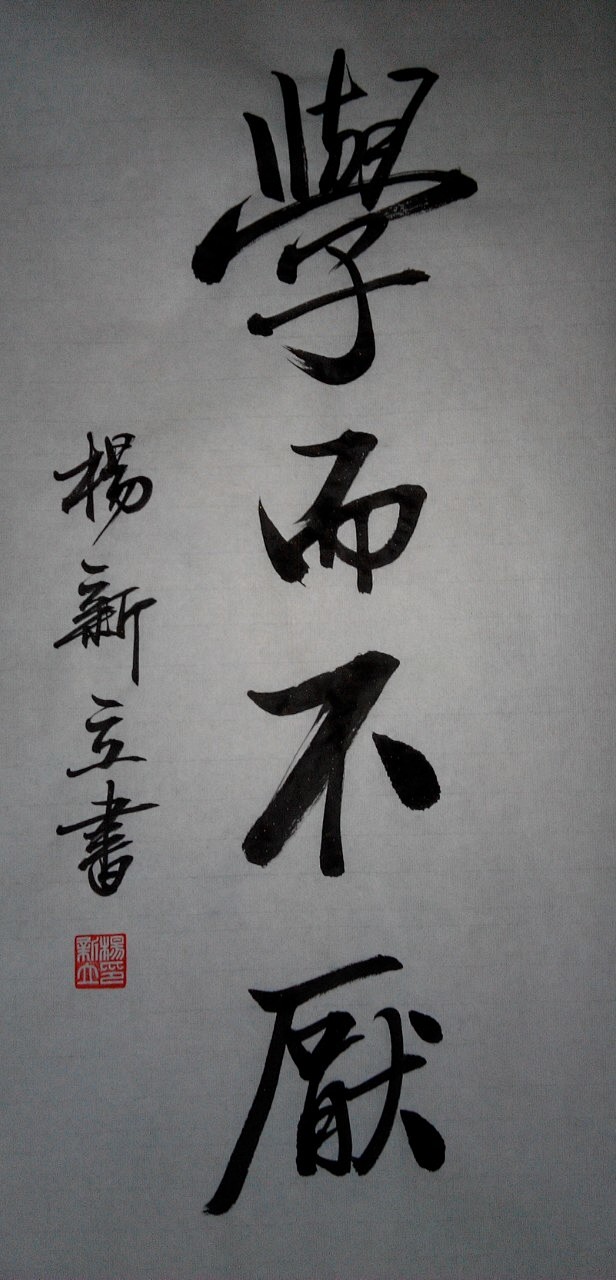 學而不厭
楊新立書
楊新立印